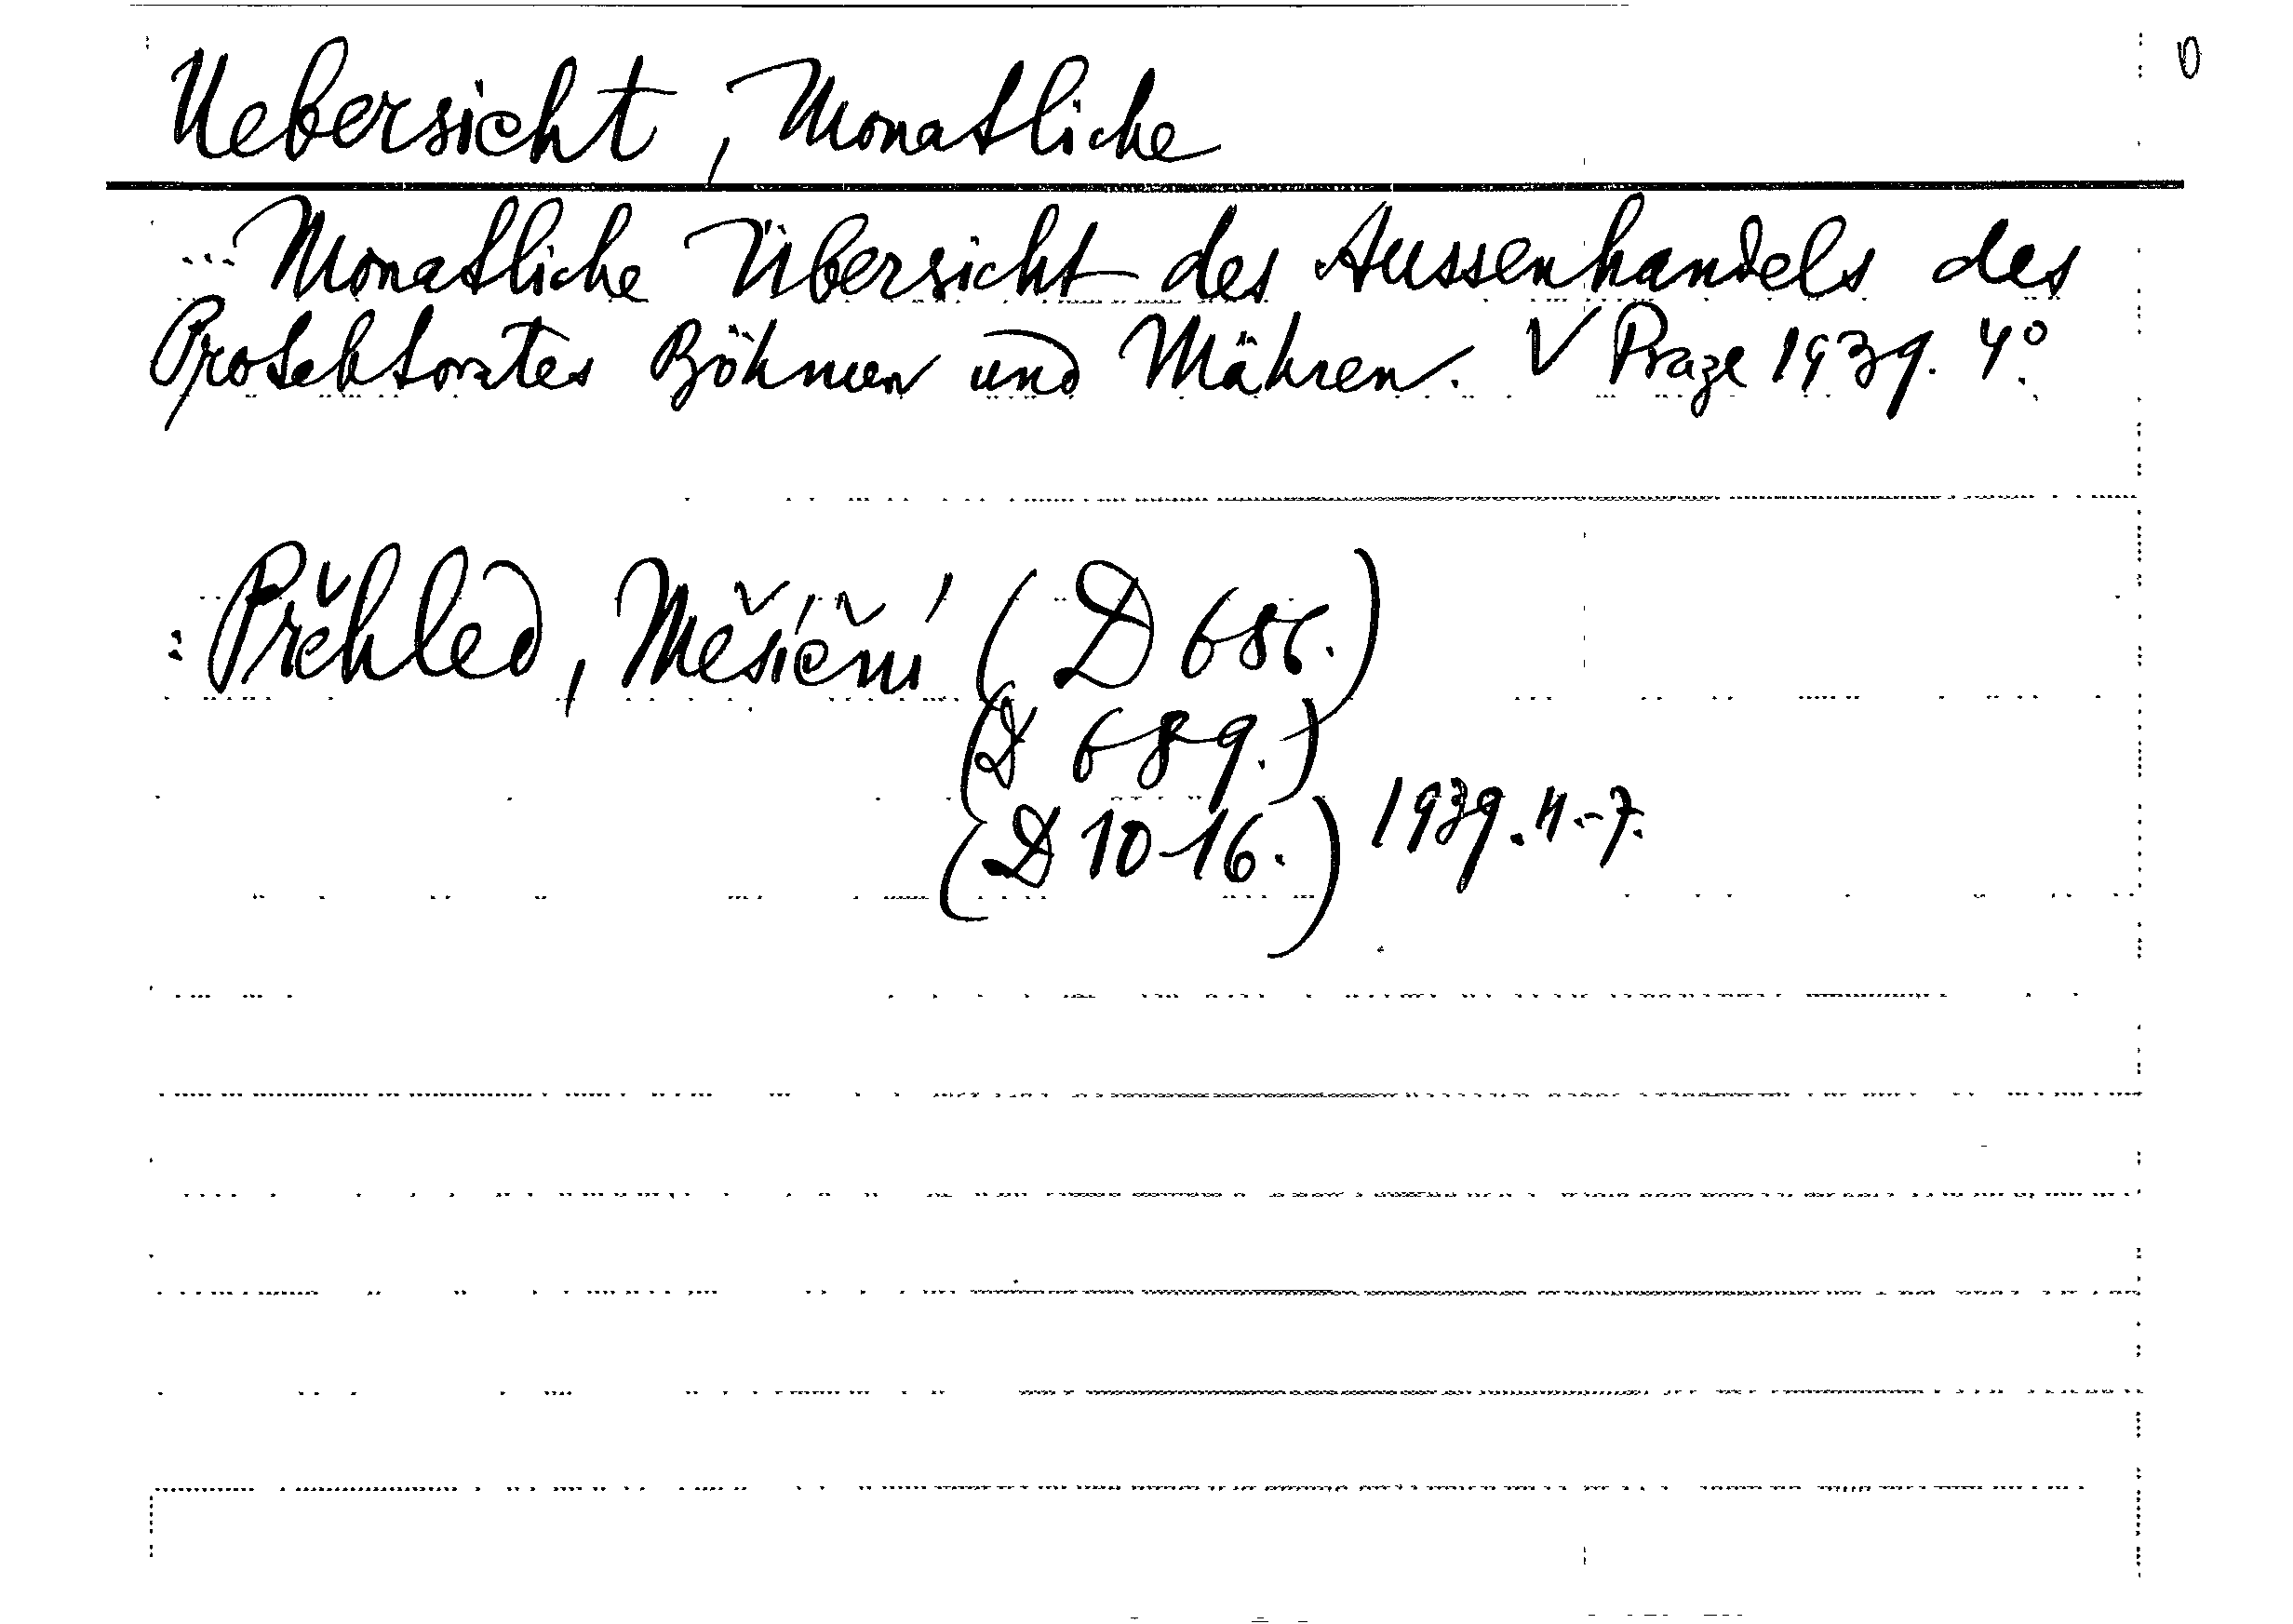 D
Uebersicht, Monatliche
... Monatliche Übersicht des Aussenhandels des
Protektorates Böhmen und Mähren. V Praze 1939. 4°.
: Přehled, Měsíční (D 686.)
(D 689.)
(D 10-16.) 1939. 4.-7.